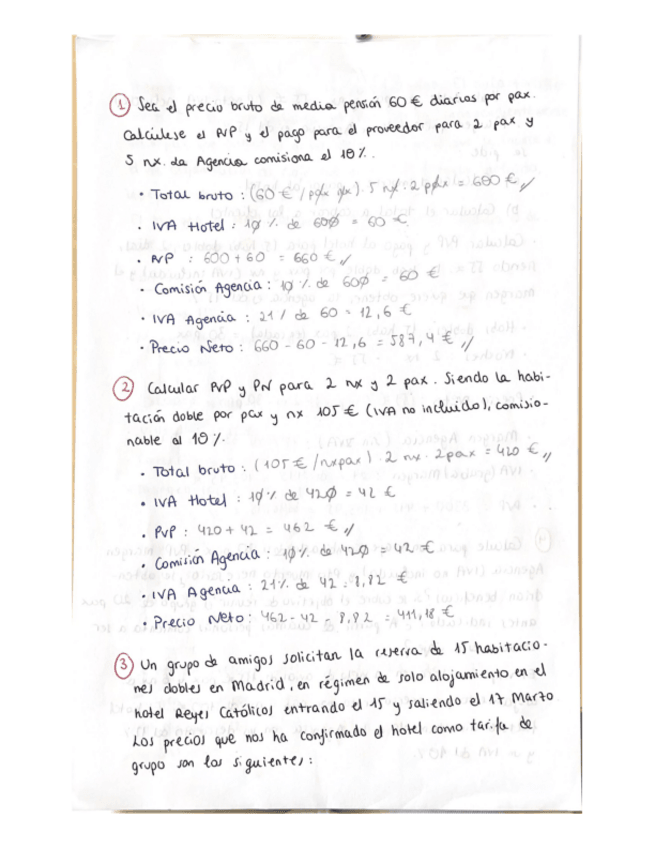 ① Sea el precio bruto de media pensión 60 € diarios por pax.
Calcúlese el PVP y el pago para el proveedor para 2 pax y
5 nx. La Agencia comisiona el 10%.
· Total bruto : (60 € / pax nx) · 5 nx · 2 pax = 600 €
· IVA Hotel : 10 % de 600 = 60 €
· PVP : 600 + 60 = 660 €
· Comisión Agencia : 10 % de 600 = 60 €
· IVA Agencia : 21 % de 60 = 12,6 €
· Precio Neto : 660 - 60 - 12,6 = 587,4 €
② Calcular PVP y PN para 2 nx y 2 pax. Siendo la habi-
tación doble por pax y nx 105 € (IVA no incluido), comisio-
nable al 10%.
· Total bruto : (105 € / nxpax) · 2 nx · 2 pax = 420 €
· IVA Hotel : 10 % de 420 = 42 €
· PVP : 420 + 42 = 462 €
· Comisión Agencia : 10 % de 420 = 42 €
· IVA Agencia : 21% de 42 = 8,82 €
· Precio Neto : 462 - 42 - 8,82 = 411,18 €
③ Un grupo de amigos solicitan la reserva de 15 habitacio-
nes dobles en Madrid, en régimen de solo alojamiento en el
hotel Reyes Católicos entrando el 15 y saliendo el 17 Marzo
Los precios que nos ha confirmado el hotel como tarifa de
grupo son los siguientes :